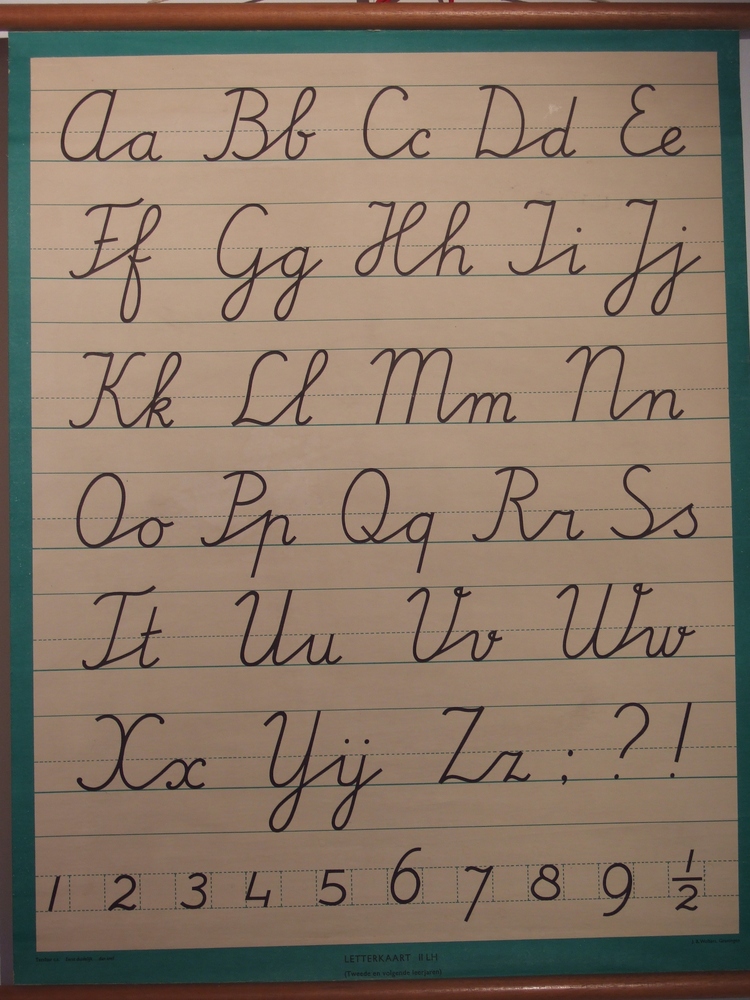 Aa Bb Cc Dd Ee
Ff Gg Hh Ii Jj
Kk Ll Mm Nn
Oo Pp Qq Rr Ss
Tt Uu Vv Ww
Xx Yÿ Zz ; ? !
1 2 3 4 5 6 7 8 9 1/2
LETTERKAART II LH
(Tweede en volgende leerjaren)